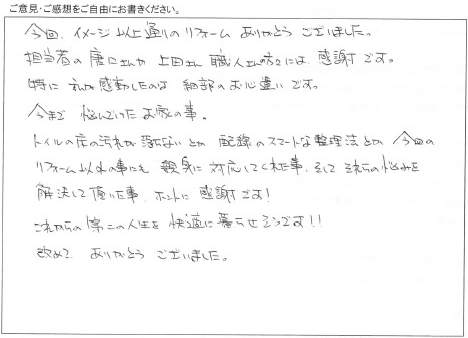 ご意見・ご感想をご自由にお書きください。
今回、イメージ以上通りのリフォーム ありがとう ございました。
担当者の 唐仁さんや 上田さん 職人さんの方々には、感謝 です。
特に 私が 感動したのは 細部の お心遣い です。
今まで 悩んでいた お家の事。
トイレの床の汚れが 落ちない とか 配線の スマートな 整理法 とか 今回の
リフォーム 以外の事にも 親身に 対応してくれた事、そして それらの 悩みを
解決して 頂いた事 ホントに 感謝 です!
これからの 第二の人生を 快適に 暮らせ そうです!!
改めて ありがとう ございました。